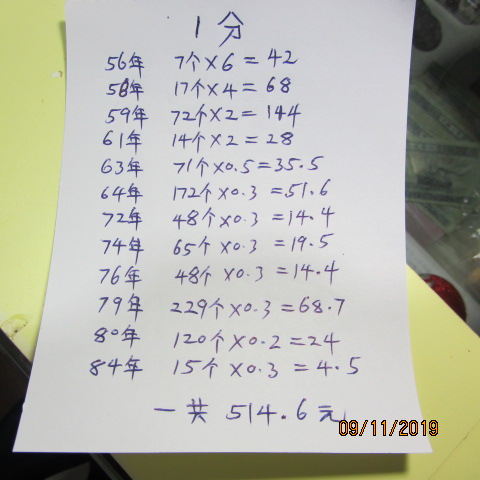 1分
56年 7个×6=42
58年 17个×4=68
59年 72个×2=144
61年 14个×2=28
63年 71个×0.5=35.5
64年 172个×0.3=51.6
72年 48个×0.3=14.4
74年 65个×0.3=19.5
76年 48个×0.3=14.4
79年 229个×0.3=68.7
80年 120个×0.2=24
84年 15个×0.3=4.5
一共 514.6元
09/11/2019